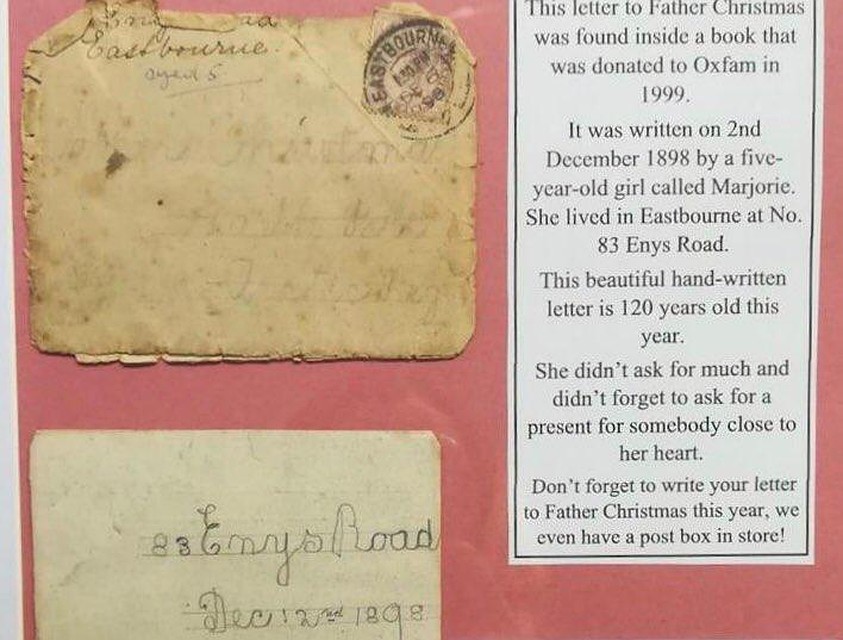 Eastbourne.
aged 5
EASTBOURNE
83 Enys Road
Dec! 2nd 1898
This letter to Father Christmas
was found inside a book that
was donated to Oxfam in
1999.
It was written on 2nd
December 1898 by a five-
year-old girl called Marjorie.
She lived in Eastbourne at No.
83 Enys Road.
This beautiful hand-written
letter is 120 years old this
year.
She didn't ask for much and
didn't forget to ask for a
present for somebody close to
her heart.
Don't forget to write your letter
to Father Christmas this year, we
even have a post box in store!